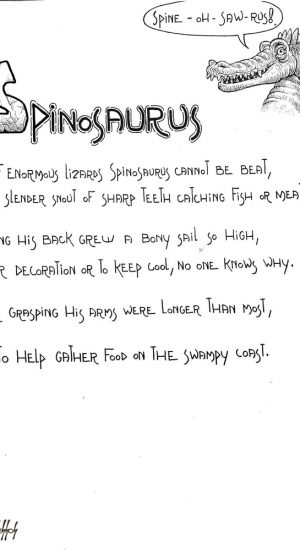 SPINE-OH-SAW-RUS!
SPINOSAURUS
ENORMOUS LIZARDS SPINOSAURUS CANNOT BE BEAT,
SLENDER SNOUT OF SHARP TEETH CATCHING FISH OR MEAT
HIS BACK GREW A BONY SAIL SO HIGH,
DECORATION OR TO KEEP COOL, NO ONE KNOWS WHY.
GRASPING HIS ARMS WERE LONGER THAN MOST,
TO HELP GATHER FOOD ON THE SWAMPY COAST.